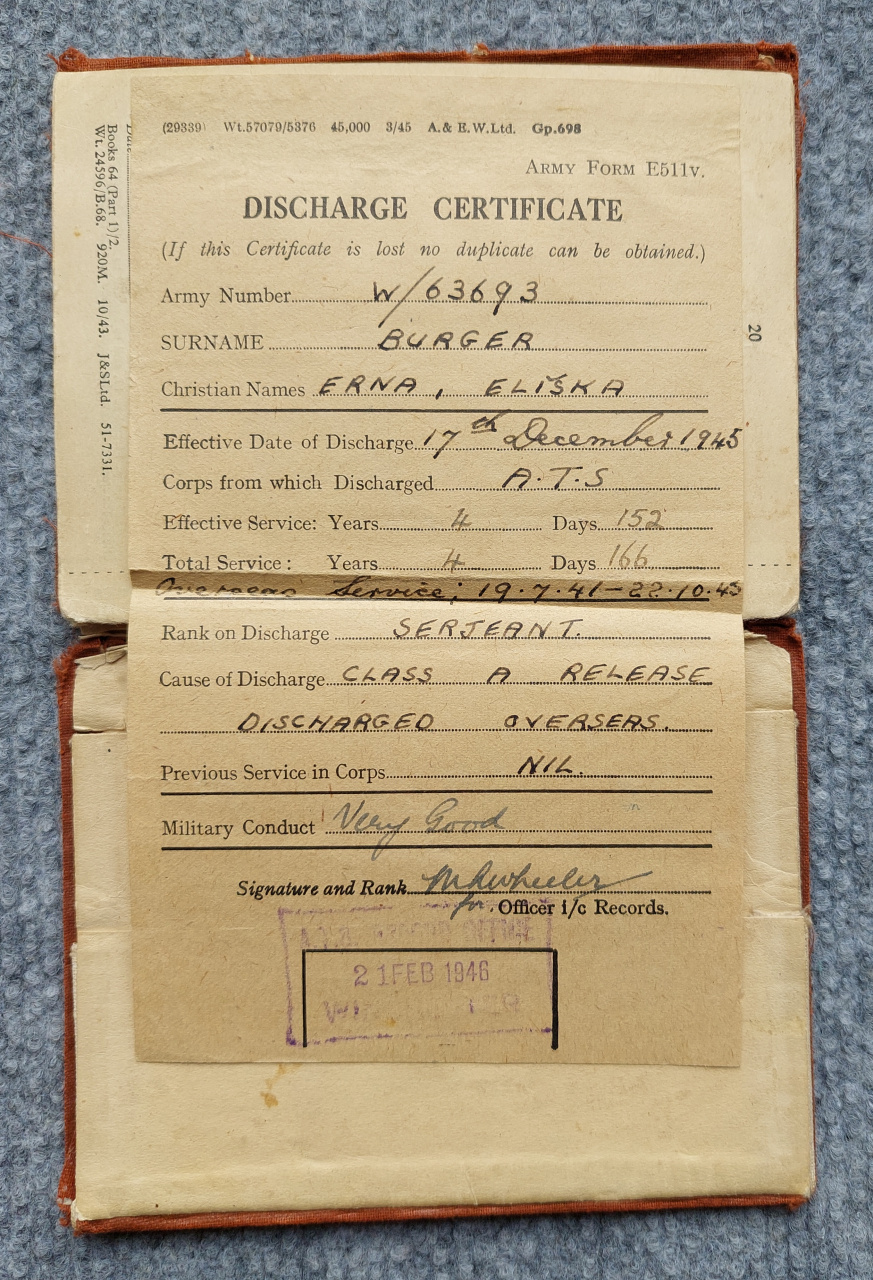 (29339) Wt.57079/5376 45,000 3/45 A.& E.W.Ltd. Gp.698
ARMY FORM E511v.
DISCHARGE CERTIFICATE
(If this Certificate is lost no duplicate can be obtained.)
Army Number W/63693
SURNAME BURGER
Christian Names ERNA, ELIŠKA
Effective Date of Discharge 17th December 1945
Corps from which Discharged A.T.S
Effective Service: Years 4 Days 152
Total Service: Years 4 Days 166
Overseas Service; 19.7.41-22.10.45
Rank on Discharge SERJEANT.
Cause of Discharge CLASS A RELEASE
DISCHARGED OVERSEAS.
Previous Service in Corps NIL.
Military Conduct Very Good
Signature and Rank Wheeler
for Officer i/c Records.
A.T.S. RECORD OFFICE
21 FEB 1946
Books 64 (Part 1)/2.
Wt. 24596/B.68. 920M. 10/43. J&SLtd. 51-7331.
20